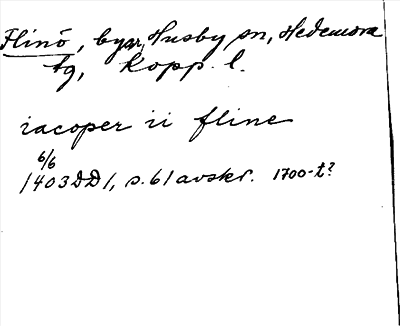 Flinö, byar, Husby sn, Hedemora
tg, Kopp. l.
iacoper ii fline
6/6
1403 DD1, s. 61 avskr. 1700-t?